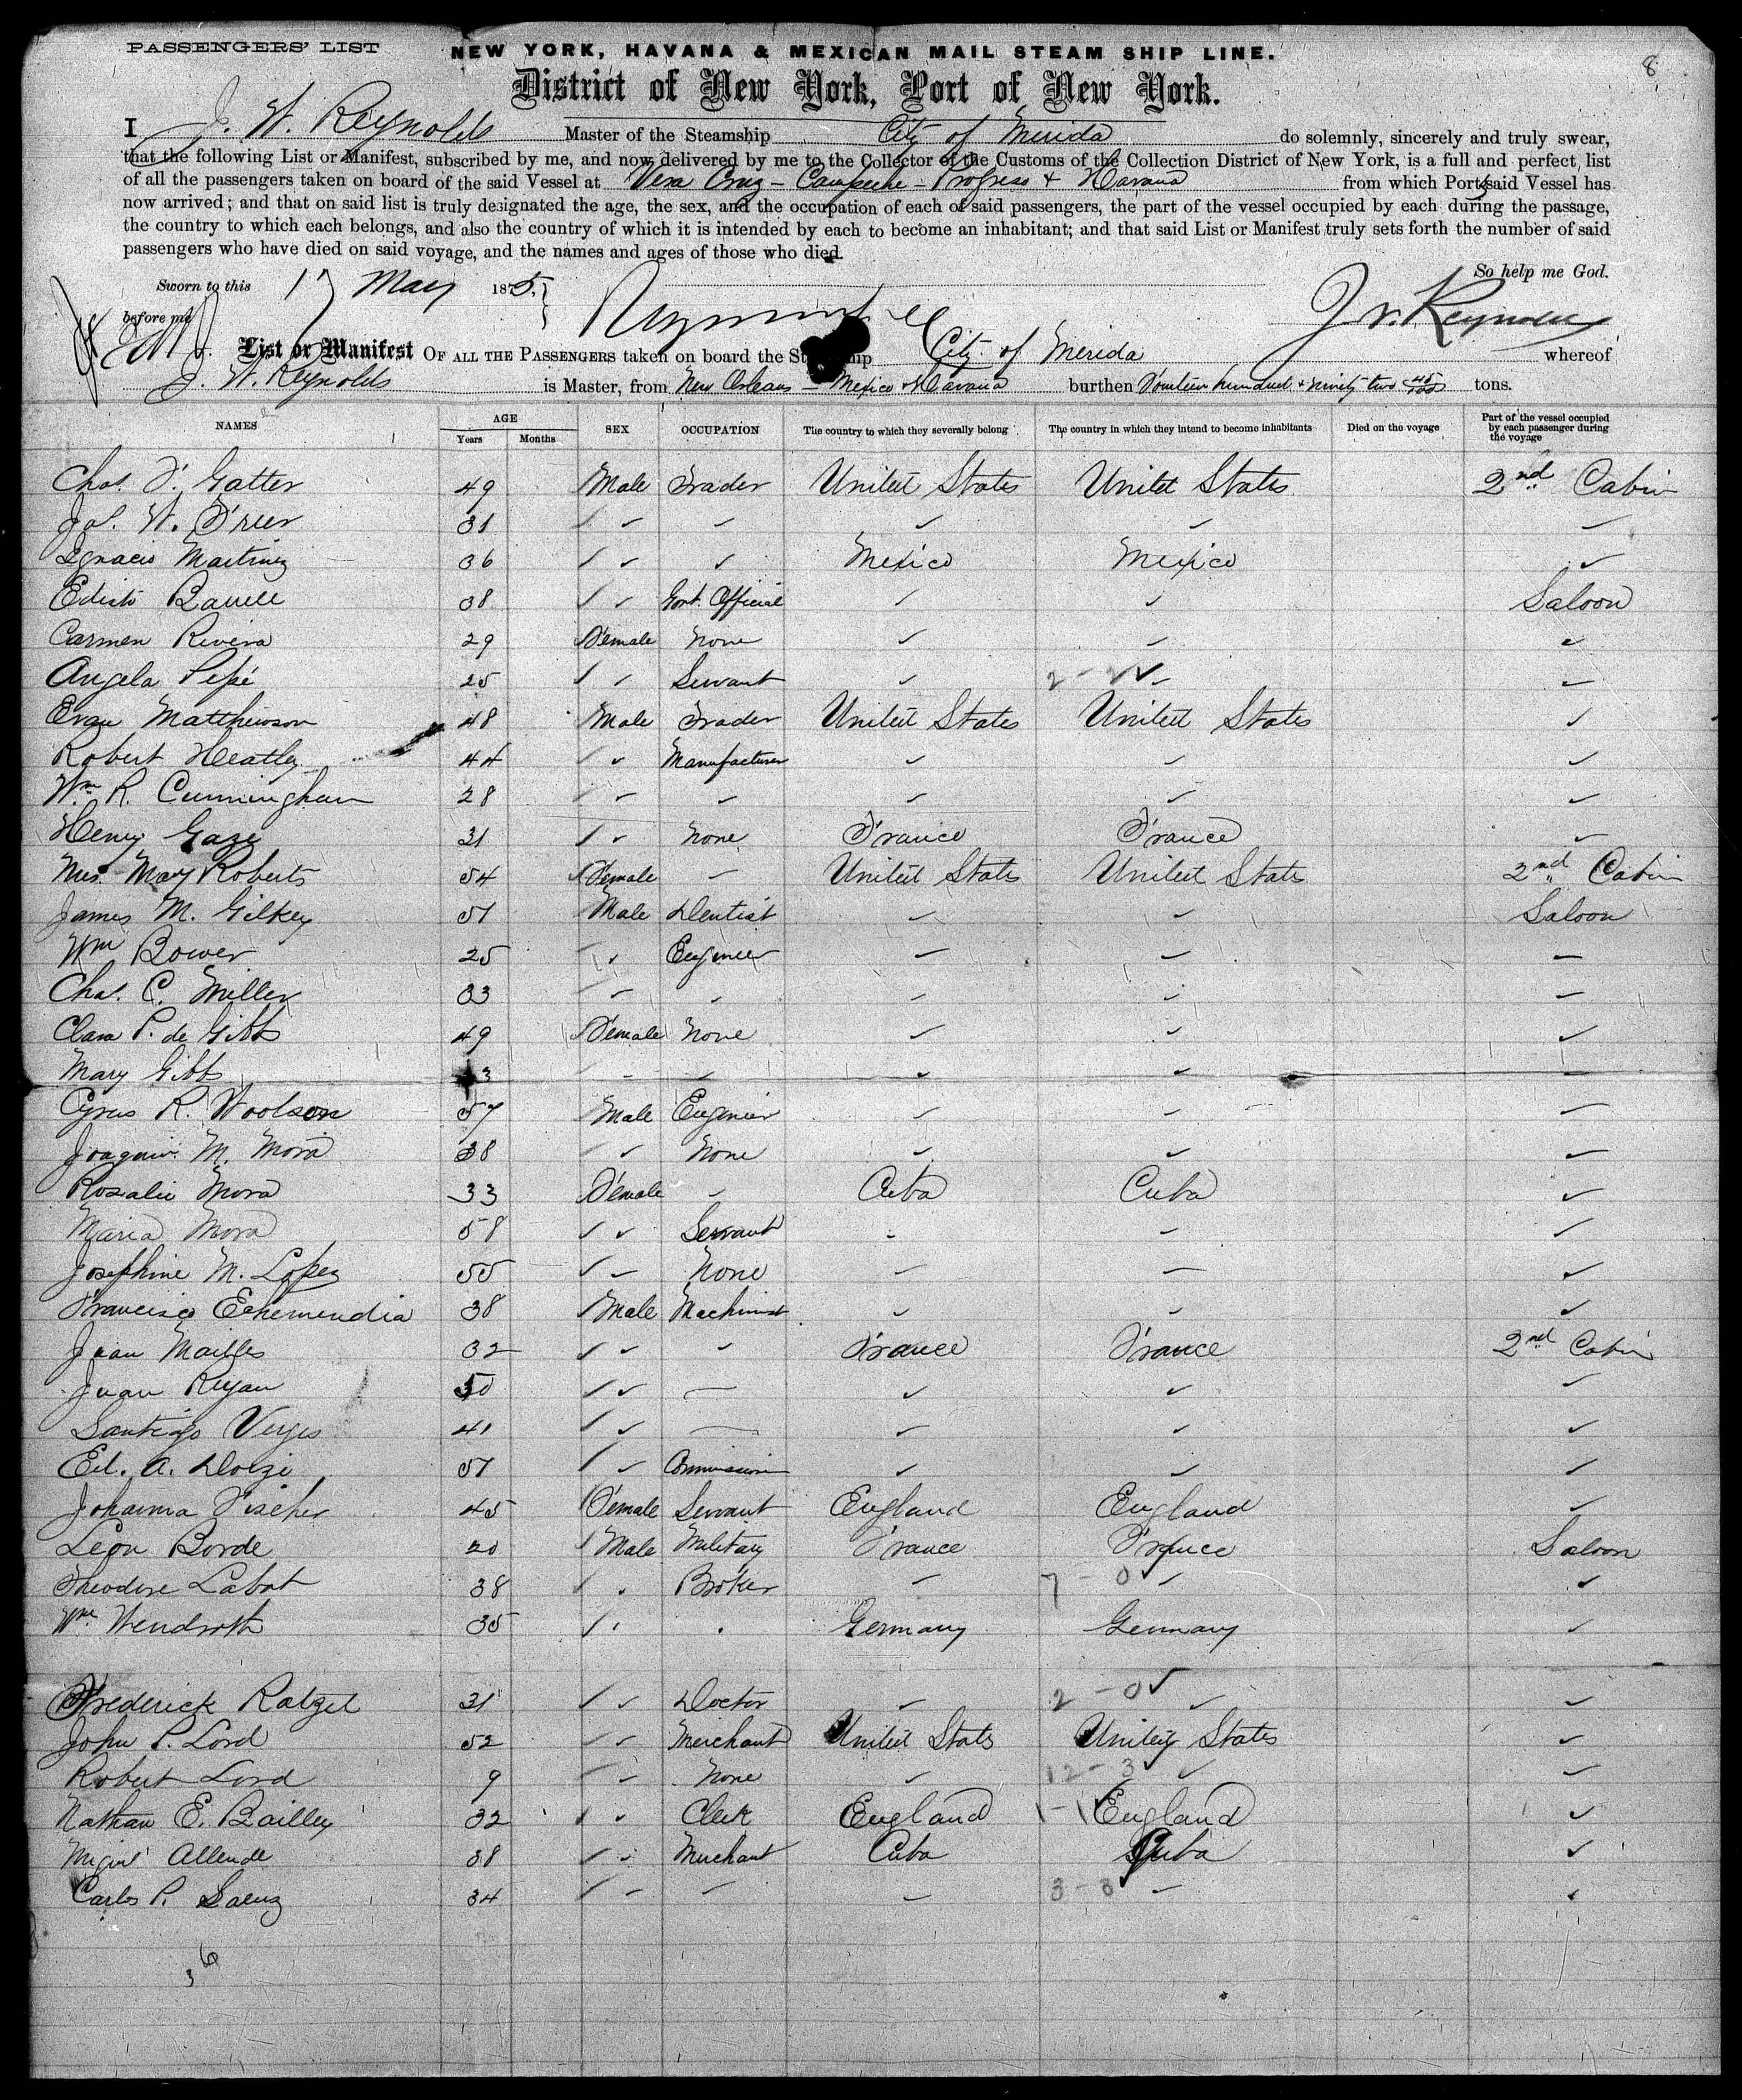 PASSENGERS' LIST
NEW YORK, HAVANA & MEXICAN MAIL STEAM SHIP LINE.
8
District of New York, Port of New York.
I J. W. Reynolds Master of the Steamship City of Merida do solemnly, sincerely and truly swear,
that the following List or Manifest, subscribed by me, and now delivered by me to the Collector of the Customs of the Collection District of New York, is a full and perfect list
of all the passengers taken on board of the said Vessel at Vera Cruz - Campeche - Progreso & Havana from which Ports said Vessel has
now arrived; and that on said list is truly designated the age, the sex, and the occupation of each of said passengers, the part of the vessel occupied by each during the passage,
the country to which each belongs, and also the country of which it is intended by each to become an inhabitant; and that said List or Manifest truly sets forth the number of said
passengers who have died on said voyage, and the names and ages of those who died.
So help me God.
Sworn to this 17 May 1875,
before me
J W. Reynolds
List or Manifest OF ALL THE PASSENGERS taken on board the Steamship City of Merida whereof
J. W. Reynolds is Master, from New Orleans - Mexico & Havana burthen Fourteen hundred & ninety two 45/100 tons.
NAMES AGE Years Months SEX OCCUPATION The country to which they severally belong The country in which they intend to become inhabitants Died on the voyage Part of the vessel occupied by each passenger during the voyage
Chas. F. Gatter 49 Male Trader United States United States 2nd Cabin
Jas. W. Freer 31
Ignacio Martinez 36 Mexico Mexico
38 Govt. Official Saloon
Carmen Rivera 29 Female None
Angela Pepé 25 Servant 2 - 2
Evan Matthewson 48 Male Trader United States United States
Robert Heatley 44 Manufacturer
Wm R. Cunningham 28
Henry Gaze 31 None France France
Mrs. Mary Roberts 54 Female United States United States 2nd Cabin
James M. Gilkey 51 Male Dentist Saloon
Wm Bower 25 Engineer
Chas. C. Miller 33
Clara P. de Gibbs 49 Female None
Mary Gibbs 3
Cyrus R. Woolson 57 Male Engineer
Joaquin M. Mora 38 None
Rosalie Mora 33 Female Cuba Cuba
Maria Mora 58 Servant
Josephine M. Lopez 55 None
Francisco Echemendia 38 Male Machinist
Juan Mailles 32 France France 2nd Cabin
Juan Reyan 50
Santiago Verges 41
Ed. A. 51 Commission
Johanna Fischer 45 Female Servant England England
Leon Borde 20 Male Military France France Saloon
Theodore Labat 38 Broker 7 - 0
Wm Wendroth 35 Germany Germany
Frederick Ratzel 31 Doctor 2 - 0
John P. Lord 52 Merchant United States United States
Robert Lord 9 None 12 - 3
Nathan E. Bailley 32 Clerk England 1 - 1 England
Miguel Allende 38 Merchant Cuba Cuba
Carlos P. Saenz 34 3 - 3
36